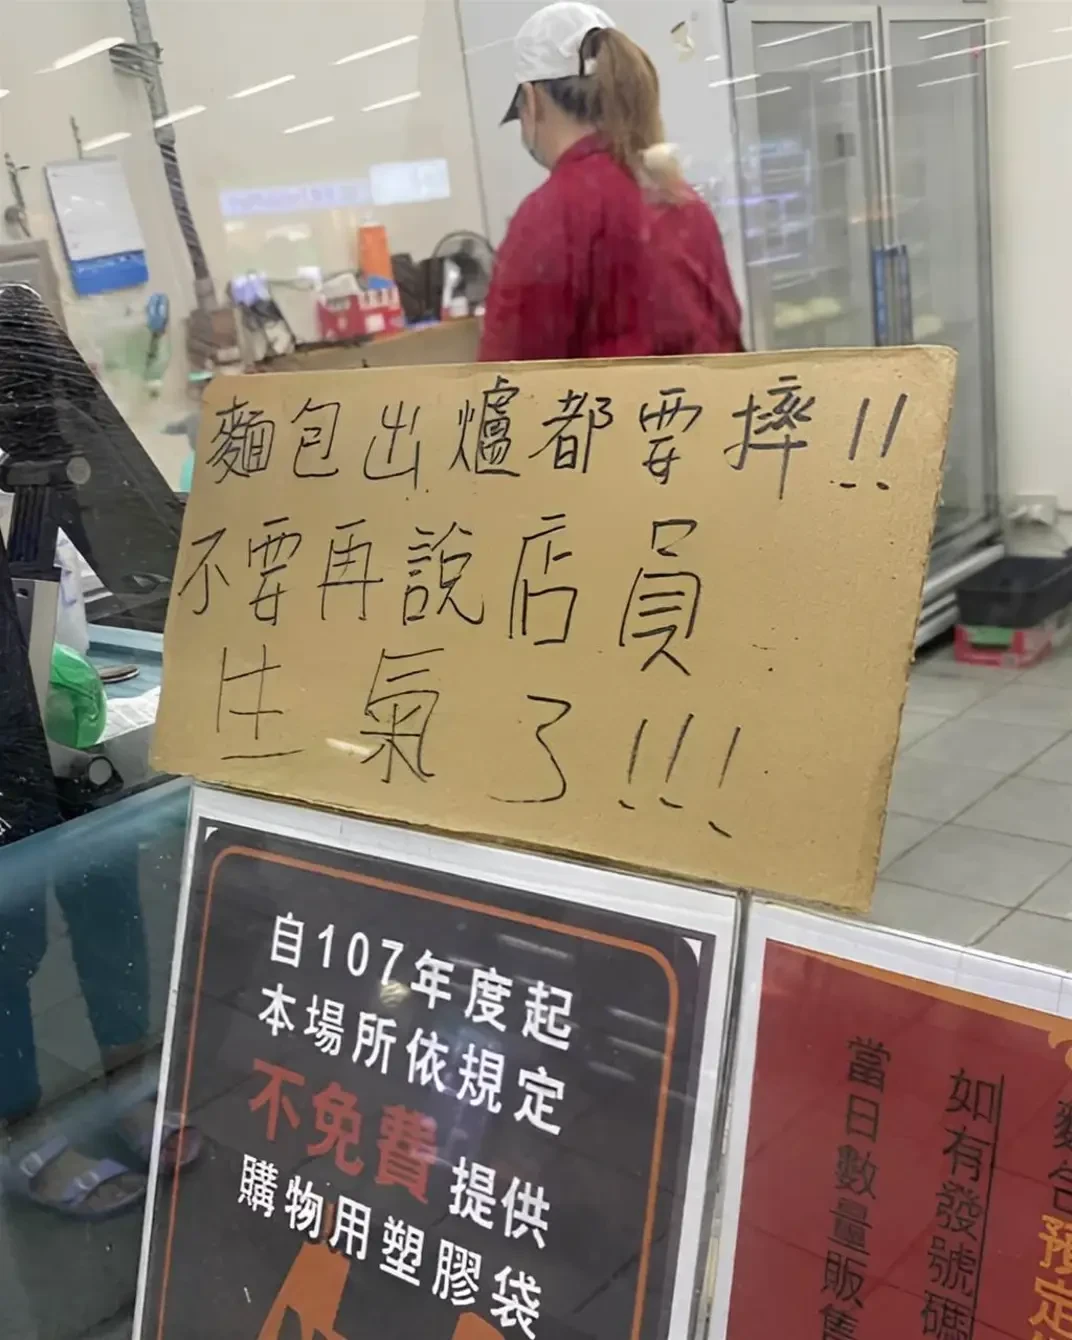 麵包出爐都要摔!!
不要再說店員
生氣了!!!
自107年度起
本場所依規定
不免費提供
購物用塑膠袋
預定
如有發號碼
當日數量販售